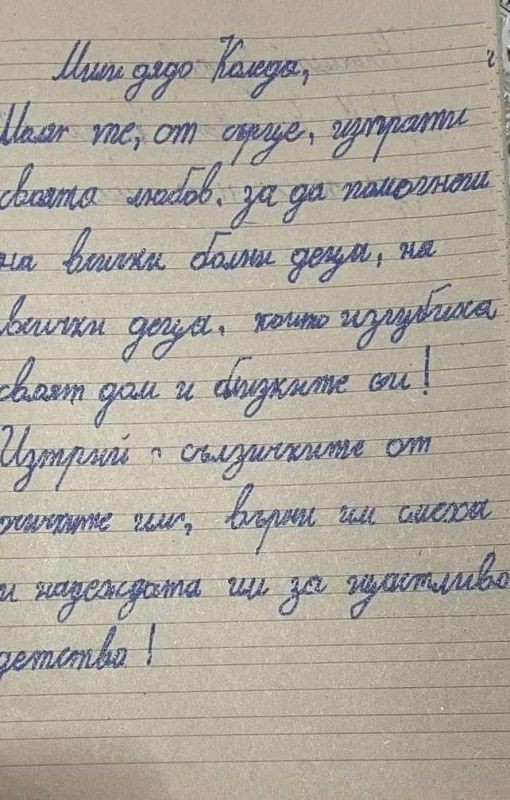 Мили дядо Коледа,
Моля те, от сърце, изпрати
своята любов, за да помогнеш
на всички болни деца, на
всички деца, които изгубиха
своят дом и близките си!
Изтрий сълзичките от
очичките им, върни им смеха
и надеждата им за щастливо
детство!